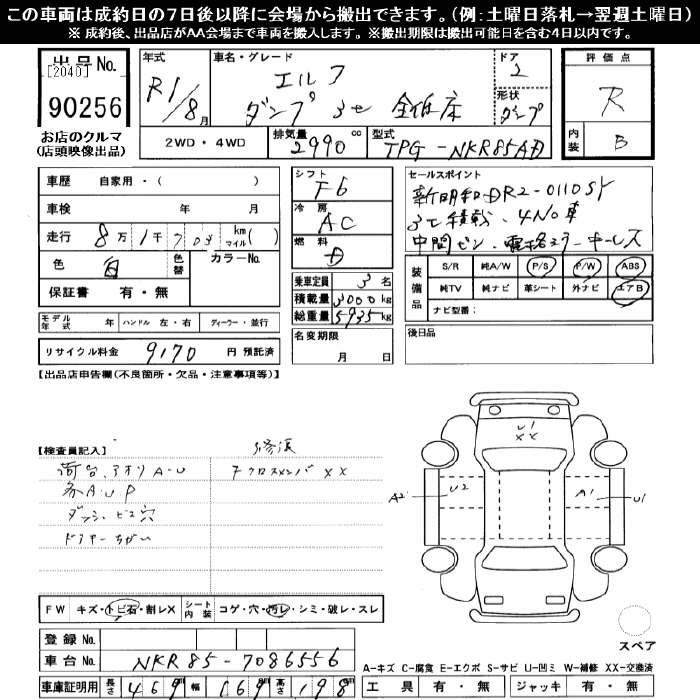 この車両は成約日の7日後以降に会場から搬出できます。(例:土曜日落札→翌週土曜日)
※ 成約後、出品店がAA会場まで車両を搬入します。※搬出期限は搬出可能日を含む4日以内です。
出品No.
[2040]
90256
お店のクルマ
(店頭映像出品)
年式 R1/8月
車名・グレード エルフ
ダンプ 3t 全低床
ドア 2
形状 ダンプ
2WD・4WD
排気量 2990 cc
型式 TPG-NKR85AD
評価点 R
内装 B
車歴 自家用・( )
車検 年 月
走行 8万1千703 km マイル( )
色 白 色替 カラーNo.
保証書 有・無
シフト F6
冷房 AC
燃料 D
乗車定員 3名
積載量 3000kg
総重量 5935kg
名変期限 月 日
セールスポイント
新明和DR2-0110SY
3t積載、4No車
中間ピン、電格ミラーキーレス
装備品
S/R 純A/W P/S P/W ABS
純TV 純ナビ 革シート 外ナビ エアB
ナビ型番:
後日品
モデル年式 年 ハンドル 左・右 ディーラー・並行
リサイクル料金 9170 円 預託済
【出品店申告欄(不良箇所・欠品・注意事項等)】
【検査員記入】
荷台、アオリA-U
各A.U.P
ダッシュ ビス穴
ドアキーちがい
修復
Fクロスメンバ XX
U1
XX
A2
U2
A1
U1
FW キズ・トビ石・割レX
シート内装 コゲ・穴・汚レ・シミ・破レ・スレ
登録No.
車台No. NKR85-7086556
車庫証明用 長さ 469 幅 169 高さ 198
スペア
A-キズ C-腐食 E-エクボ S-サビ U-凹ミ W-補修 XX-交換済
工具 有・無 ジャッキ 有・無